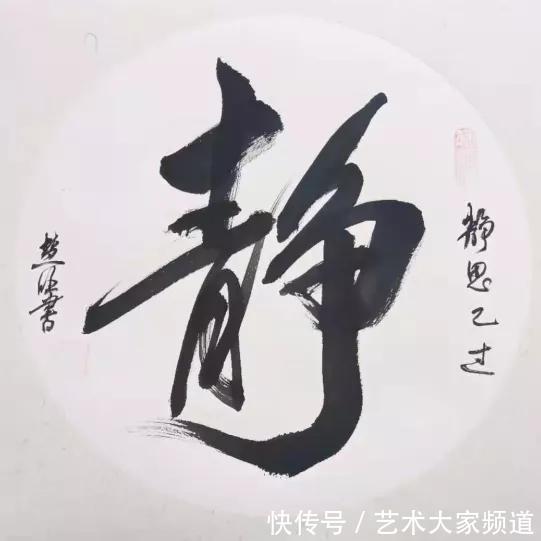 静
静思己过
书
快传号/艺术大家频道